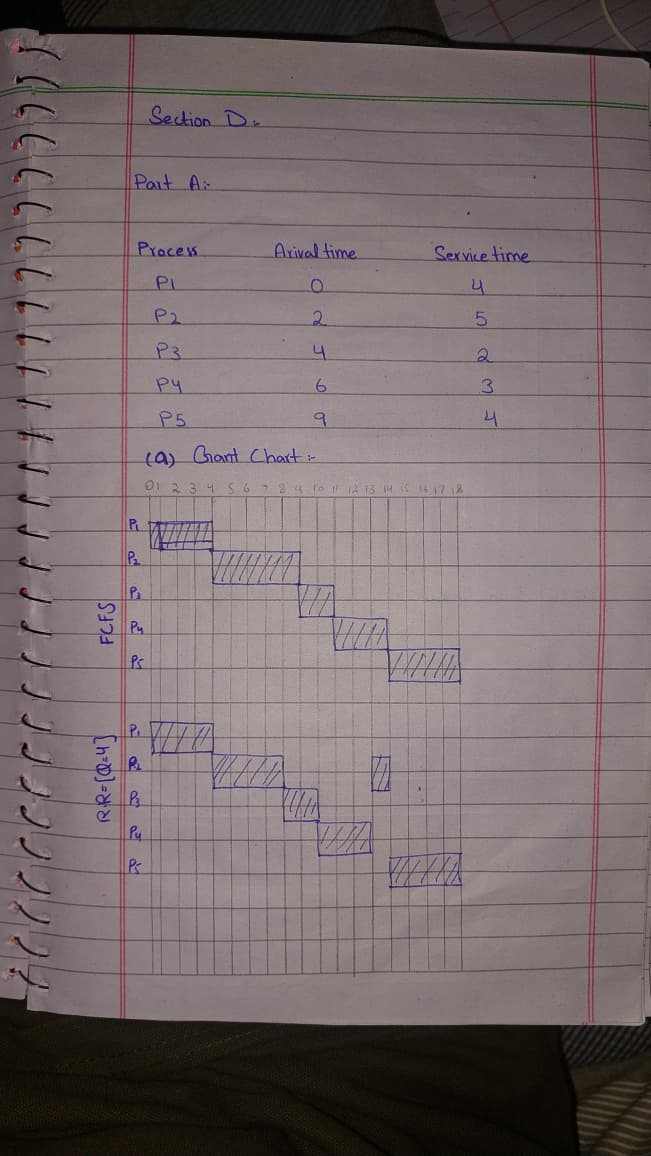 Section D:-
Part A:-
Process Arival time Service time
P1 0 4
P2 2 5
P3 4 2
P4 6 3
P5 9 4
(a) Grant Chart :-
0 1 2 3 4 5 6 7 8 9 10 11 12 13 14 15 16 17 18
FCFS
P1
P2
P3
P4
P5
R.R=[Q=4]
P1
P2
P3
P4
P5